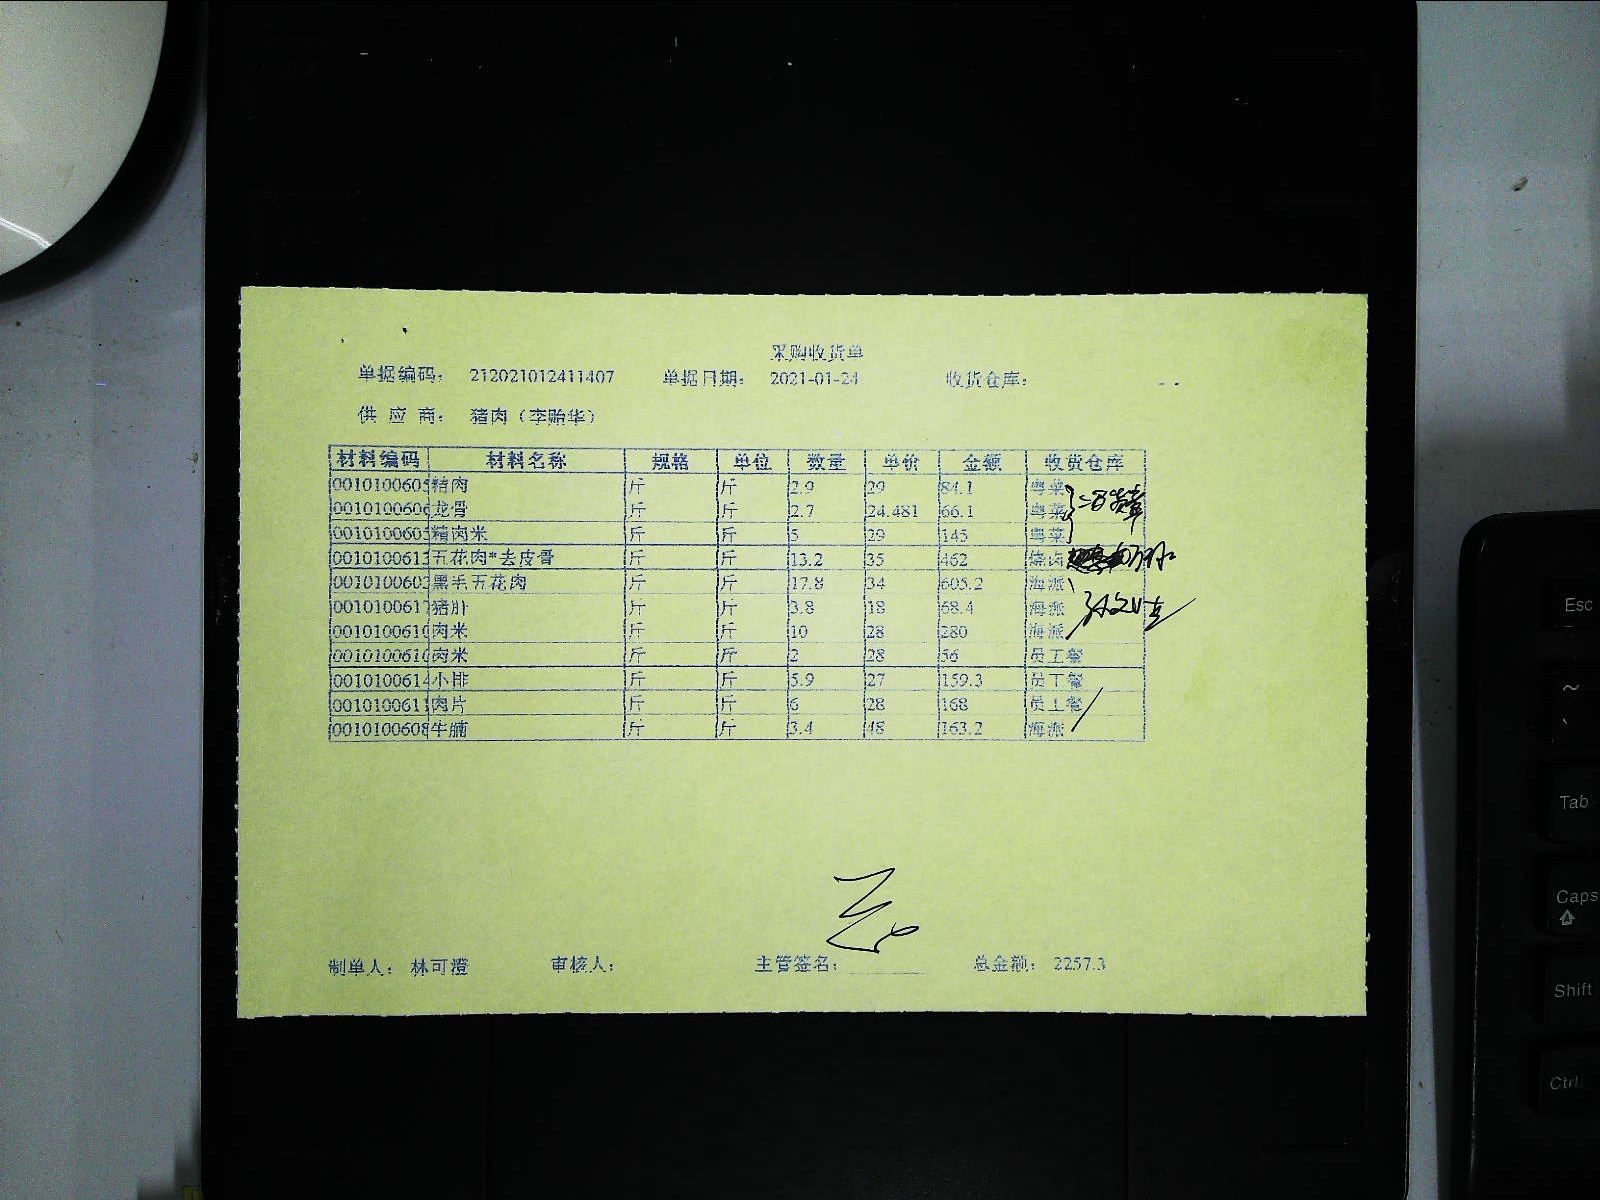 采购收货单
单据编码： 212021012411407 单据日期： 2021-01-24 收货仓库： - -
供 应 商： 猪肉（李贻华）
材料编码 材料名称 规格 单位 数量 单价 金额 收货仓库
0010100605 精肉 斤 斤 2.9 29 84.1 粤菜
0010100606 龙骨 斤 斤 2.7 24.481 66.1 粤菜
0010100605 精肉米 斤 斤 5 29 145 粤菜
0010100613 五花肉*去皮骨 斤 斤 13.2 35 462 烧卤
0010100603 黑毛五花肉 斤 斤 17.8 34 605.2 海派
0010100617 猪肚 斤 斤 3.8 18 68.4 海派
0010100610 肉米 斤 斤 10 28 280 海派
0010100610 肉米 斤 斤 2 28 56 员工餐
0010100614 小排 斤 斤 5.9 27 159.3 员工餐
0010100611 肉片 斤 斤 6 28 168 员工餐
0010100608 牛腩 斤 斤 3.4 48 163.2 海派
制单人： 林可澄 审核人： 主管签名： 总金额： 2257.3
Esc
~
Tab
Caps
Shift
Ctrl